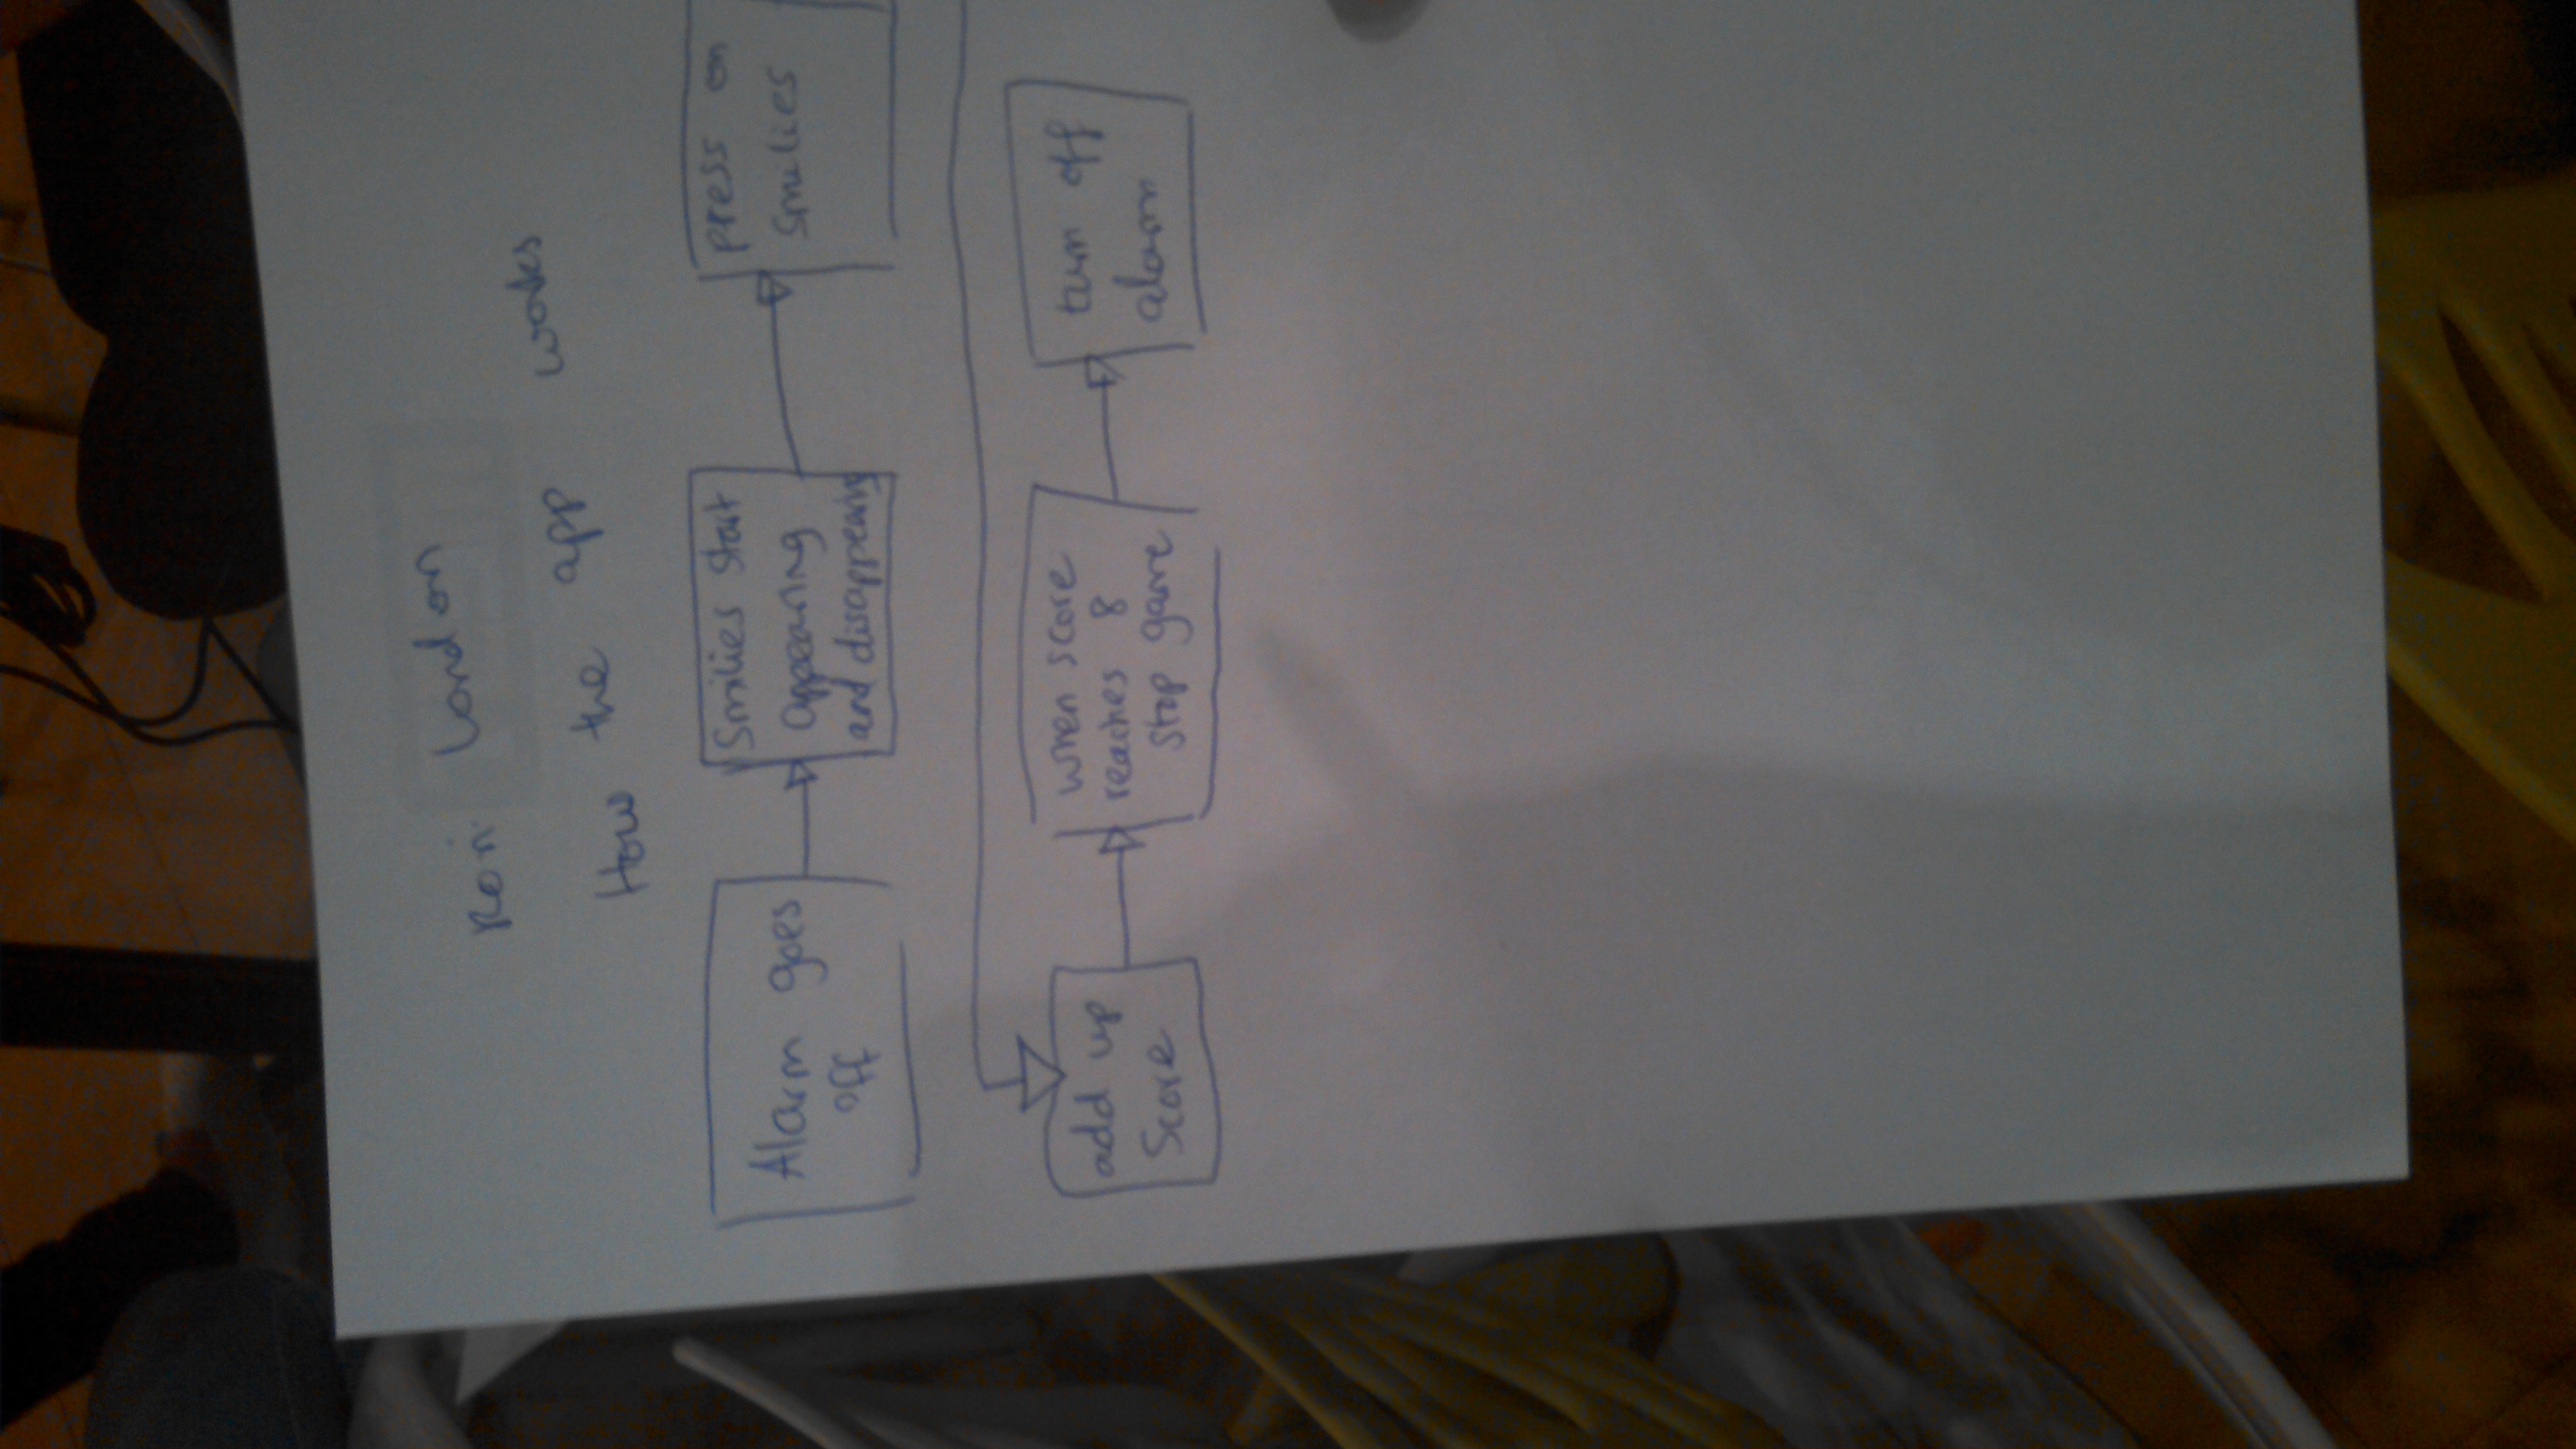 Roni London
How the app works
Alarm goes
off
Smilies start
appearing
and disappearing
press on
smilies
add up
Score
when score
reaches 8
stop game
turn off
alarm